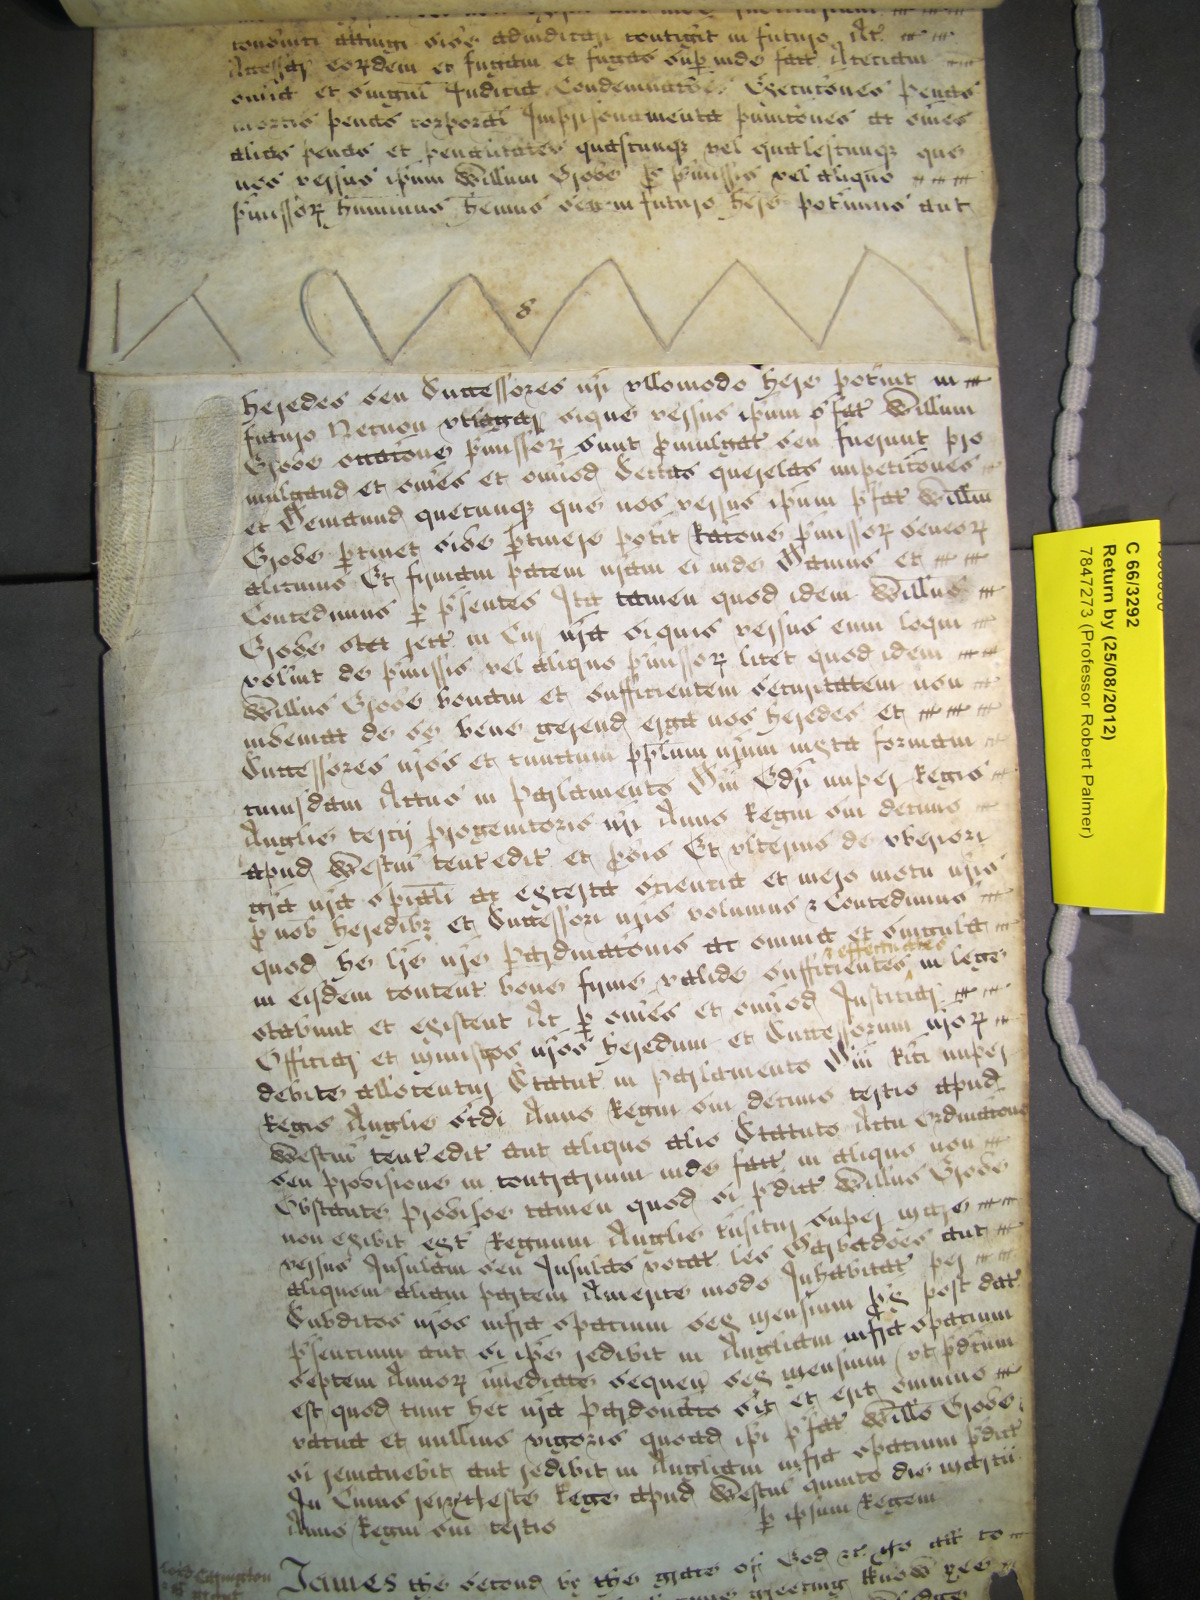 convinci attingi sive adiudicari contigit in futuro Ac
Accessar eordem et fugam et fugas superinde fact Acetiam
omia et singul Judicia Condemnacoes Execucones penas
mortis penas corporal Imprisonamenta punicones ac omes
alias penas et penalitates quascunq vel qualescunq que
nos versus ipum Willum Grove p pmissis vel aliquo
pmissor huimus hemus seu in futuro here poterimus aut
8
heredes seu Successores nri ullomodo here poterint in
futuro Necnon utlagar sique versus ipum pfat Willum
Grove occacone pmissor sunt pmulgat seu fuerunt pro
mulgand et omes et omiod Sectas querelas impeticones
et Demaund quecunq que nos versus ipum pfat Willm
Grove ptinet sive ptinere potit Racone pmissor seu eor
alicuius Et firmam pacem nram ei inde Damus et
Concedimus p psentes Ita tamen quod idem Willus
Grove stet rect in Cur nra siquis versus eum loqui
volint de pmissis vel aliquo pmissor licet quod idem
Willus Grove bonam et sufficientem securitatem non
inveniat de se bene gerend erga nos heredes et
Successores nros et cunctum pplum nrum iuxta formam
cuiusdam Actus in Parlamento Dni Edri nuper Regis
Anglie tercii progenitoris nri Anno Regni sui decimo
apud Westm tent edit et pvis Et ulterius de uberiori
gra nra spiali ac ex certa scientia et mero motu nris
p nob heredibz et Successor nris volumus & Concedimus
quod he lre nre Pardonaconis ac omnia et singula
effectuales
in eisdem content bone firme valide sufficientes in lege
stabunt et existent Ac p omes et omiod Justiciar
Officiar et ministros nros heredum et Successorum nror
debite allocentur Statut in Parlamento Dni Rici nuper
Regis Anglie scdi Anno Regni sui decimo tertio apud
Westm tent edit aut aliquo alio Statuto Actu Ordinacone
seu provisione in contrarium inde fact in aliquo non
Obstante Proviso tamen quod si pdict Willus Grove
non exibit ext Regnum Anglie tusitur super mare
versus Insulam seu Insulas vocat les Barbadoes aut
aliquam aliam partem Americe modo Inhabitat per
Subditos nros infra spatium sex mensium px post dat
psentium aut si ipe redibit in Angliam infra spatium
septem Annor imediate sequen sex mensium ut pdcum
est quod tunc hec nra Pardonacio sit et erit omnino
vacua et nullius vigoris quoad ipi pfat Willo Grove
si remanebit aut redibit in Angliam infra spatium pdict
In Cuius rei &c Teste Rege apud Westm quinto die Martii
Anno Regni sui tercio
p ipsum Regem
James the second by the grace of God &c To all to
greeting Know yee
C 66/3292
Return by (25/08/2012)
7847273 (Professor Robert Palmer)